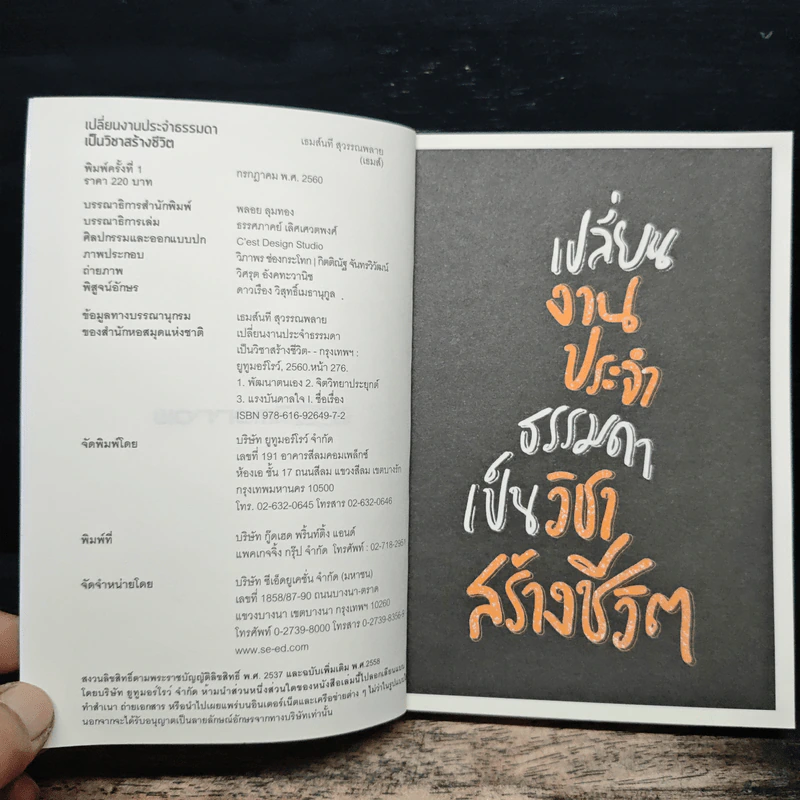 เปลี่ยนงานประจำธรรมดา
เป็นวิชาสร้างชีวิต
เธมส์นที สุวรรณพลาย
(เธมส์)
พิมพ์ครั้งที่ 1 กรกฎาคม พ.ศ. 2560
ราคา 220 บาท
บรรณาธิการสำนักพิมพ์ พลอย ลุมทอง
บรรณาธิการเล่ม ธรรศภาคย์ เลิศเศวตพงศ์
ศิลปกรรมและออกแบบปก C'est Design Studio
ภาพประกอบ วิภาพร ช่องกระโทก | กิตติณัฐ จันทรวิวัฒน์
ถ่ายภาพ วิศรุต อังคทะวานิช
พิสูจน์อักษร ดาวเรือง วิสุทธิ์เมธานุกูล
ข้อมูลทางบรรณานุกรม เธมส์นที สุวรรณพลาย
ของสำนักหอสมุดแห่งชาติ เปลี่ยนงานประจำธรรมดา
เป็นวิชาสร้างชีวิต- - กรุงเทพฯ :
ยูทูมอร์โรว์, 2560.หน้า 276.
1. พัฒนาตนเอง 2. จิตวิทยาประยุกต์
3. แรงบันดาลใจ I. ชื่อเรื่อง
ISBN 978-616-92649-7-2
จัดพิมพ์โดย บริษัท ยูทูมอร์โรว์ จำกัด
เลขที่ 191 อาคารสีลมคอมเพล็กซ์
ห้องเอ ชั้น 17 ถนนสีลม แขวงสีลม เขตบางรัก
กรุงเทพมหานคร 10500
โทร. 02-632-0645 โทรสาร 02-632-0646
พิมพ์ที่ บริษัท กู๊ดเฮด พริ้นท์ติ้ง แอนด์
แพคเกจจิ้ง กรุ๊ป จำกัด โทรศัพท์ : 02-718-295
จัดจำหน่ายโดย บริษัท ซีเอ็ดยูเคชั่น จำกัด (มหาชน)
เลขที่ 1858/87-90 ถนนบางนา-ตราด
แขวงบางนา เขตบางนา กรุงเทพฯ 10260
โทรศัพท์ 0-2739-8000 โทรสาร 0-2739-8356-9
www.se-ed.com
สงวนลิขสิทธิ์ตามพระราชบัญญัติลิขสิทธิ์ พ.ศ. 2537 และฉบับเพิ่มเติม พ.ศ.2558
โดยบริษัท ยูทูมอร์โรว์ จำกัด ห้ามนำส่วนหนึ่งส่วนใดของหนังสือเล่มนี้ไปลอกเลียนแบบ
ทำสำเนา ถ่ายเอกสาร หรือนำไปเผยแพร่บนอินเตอร์เน็ตและเครือข่ายต่าง ๆ ไม่ว่าในรูปแบบ
นอกจากจะได้รับอนุญาตเป็นลายลักษณ์อักษรจากทางบริษัทเท่านั้น
เปลี่ยน
งาน
ประจำ
ธรรมดา
เป็นวิชา
สร้างชีวิต